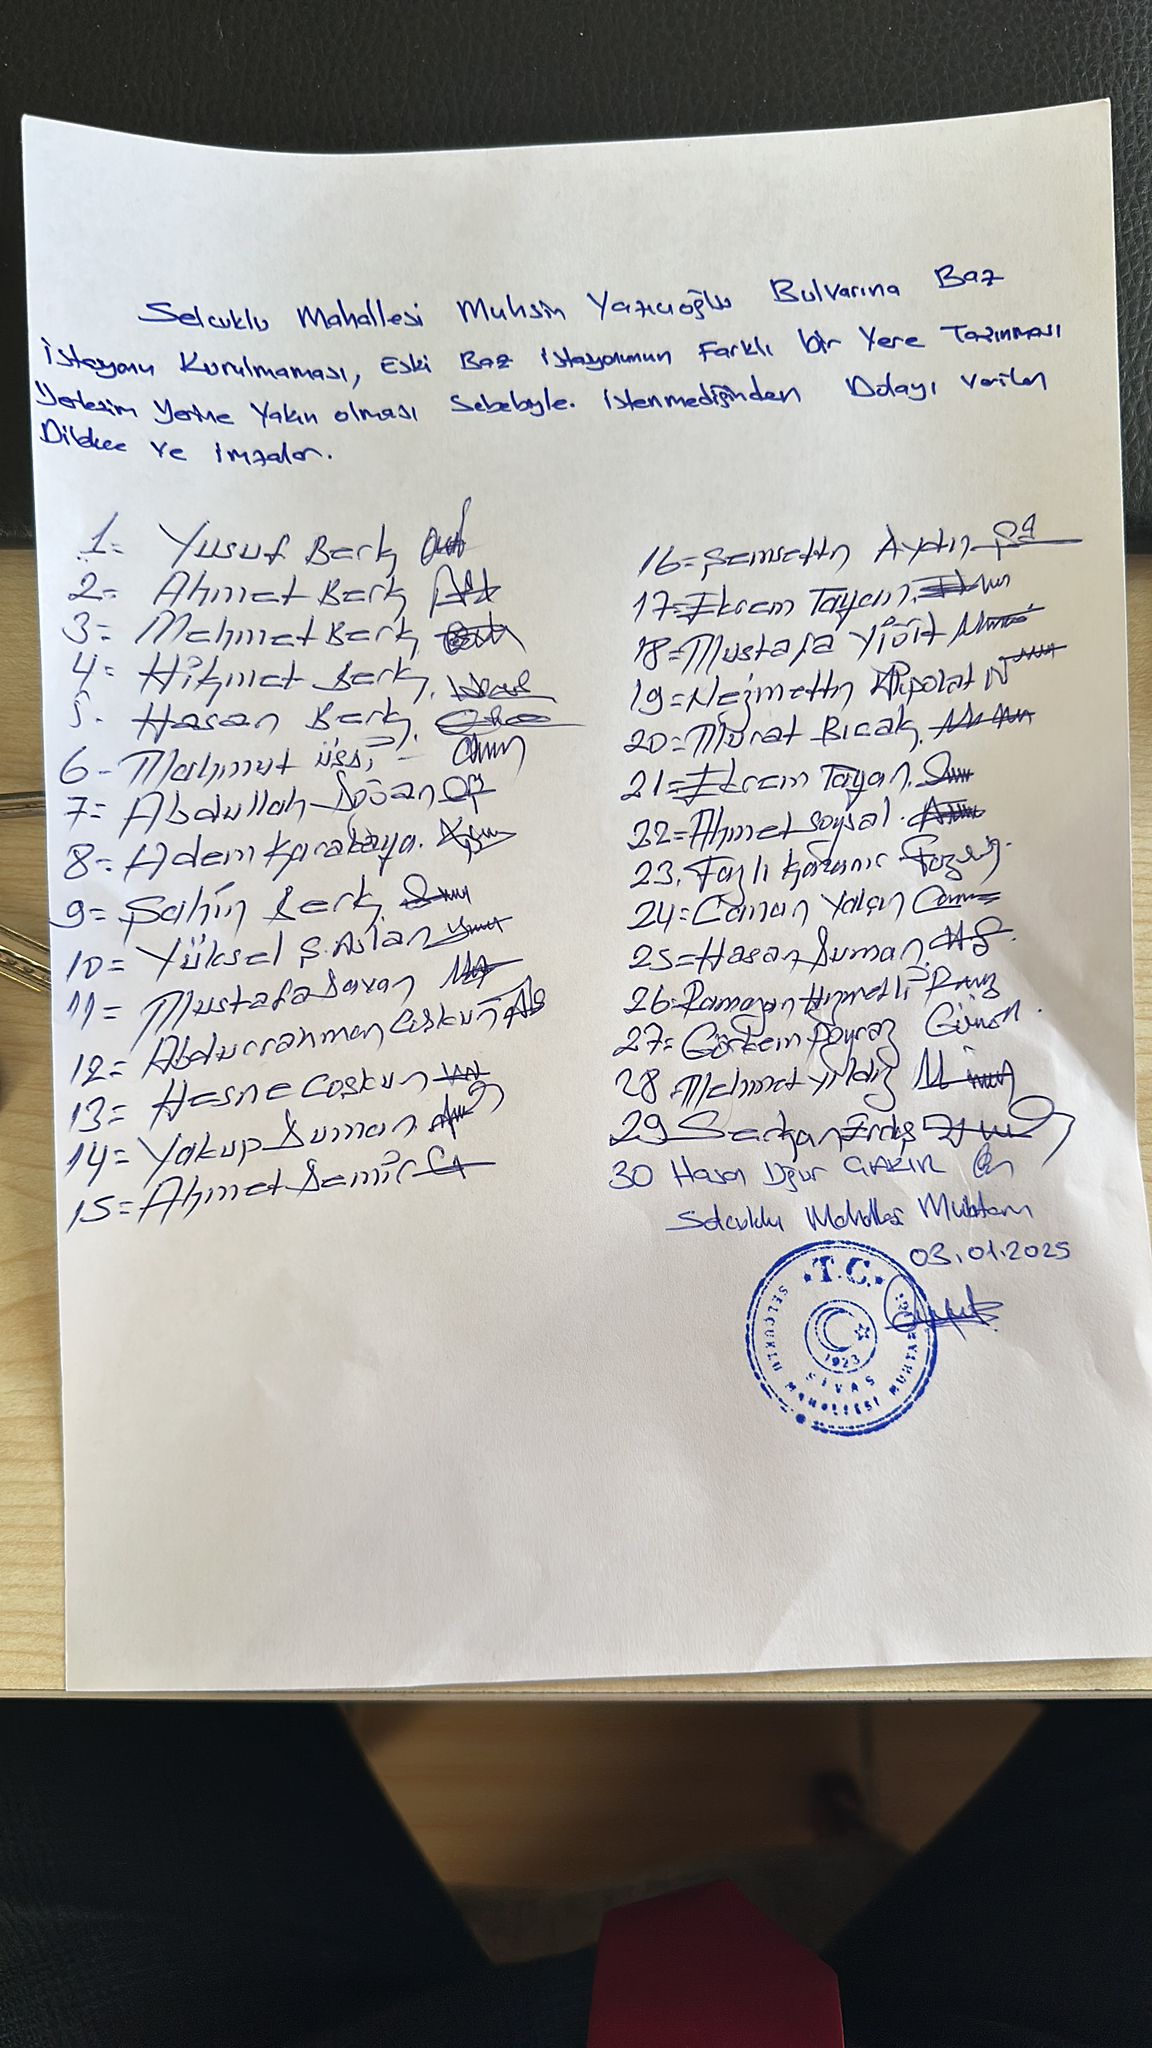 Selcuklu Mahallesi Muhsin Yazıcıoğlu Bulvarına Baz
istasyonu Kurulmaması, Eski Baz istasyonunun Farklı bir Yere Taşınması
Yerlesim Yerine Yakın olması Sebebiyle. istenmediğinden Dolayı verilen
Dilekce ve imzalar.
1= Yusuf Berk
2= Ahmet Berk
3= Mehmet Berk
4= Hikmet Berk
5- Hasan Berk
6- Mahmut
7= Abdullah Doğan
8= Adem Karakaya.
9= Şahin Berk
10= Yüksel Ş. Aslan
11= Mustafa Savan
12= Abdurrahman
13= Hesne Coşkun
14= Yakup Duman
15= Ahmet Demir
16= Şemsettin Aydın
17= Ekrem Tayan
18= Mustafa Yiğit
19= Nejmettin Akpolat
20= Murat Bıcak
21= Ekrem Tayan
22= Ahmet Soysal.
23. Fazlı
24= Canan Yalçın
25= Hasan Duman
26- Ramazan Hizmetli
27= Görkem Poyraz
28 Mehmet Yıldız
29 Serkan
30 Hasan Uğur ÇAKIR
Selcuklu Mahallesi Muhtarı
03.01.2025
T.C.
1923
SİVAS
SELÇUKLU MAHALLESİ MUHTARLIĞI